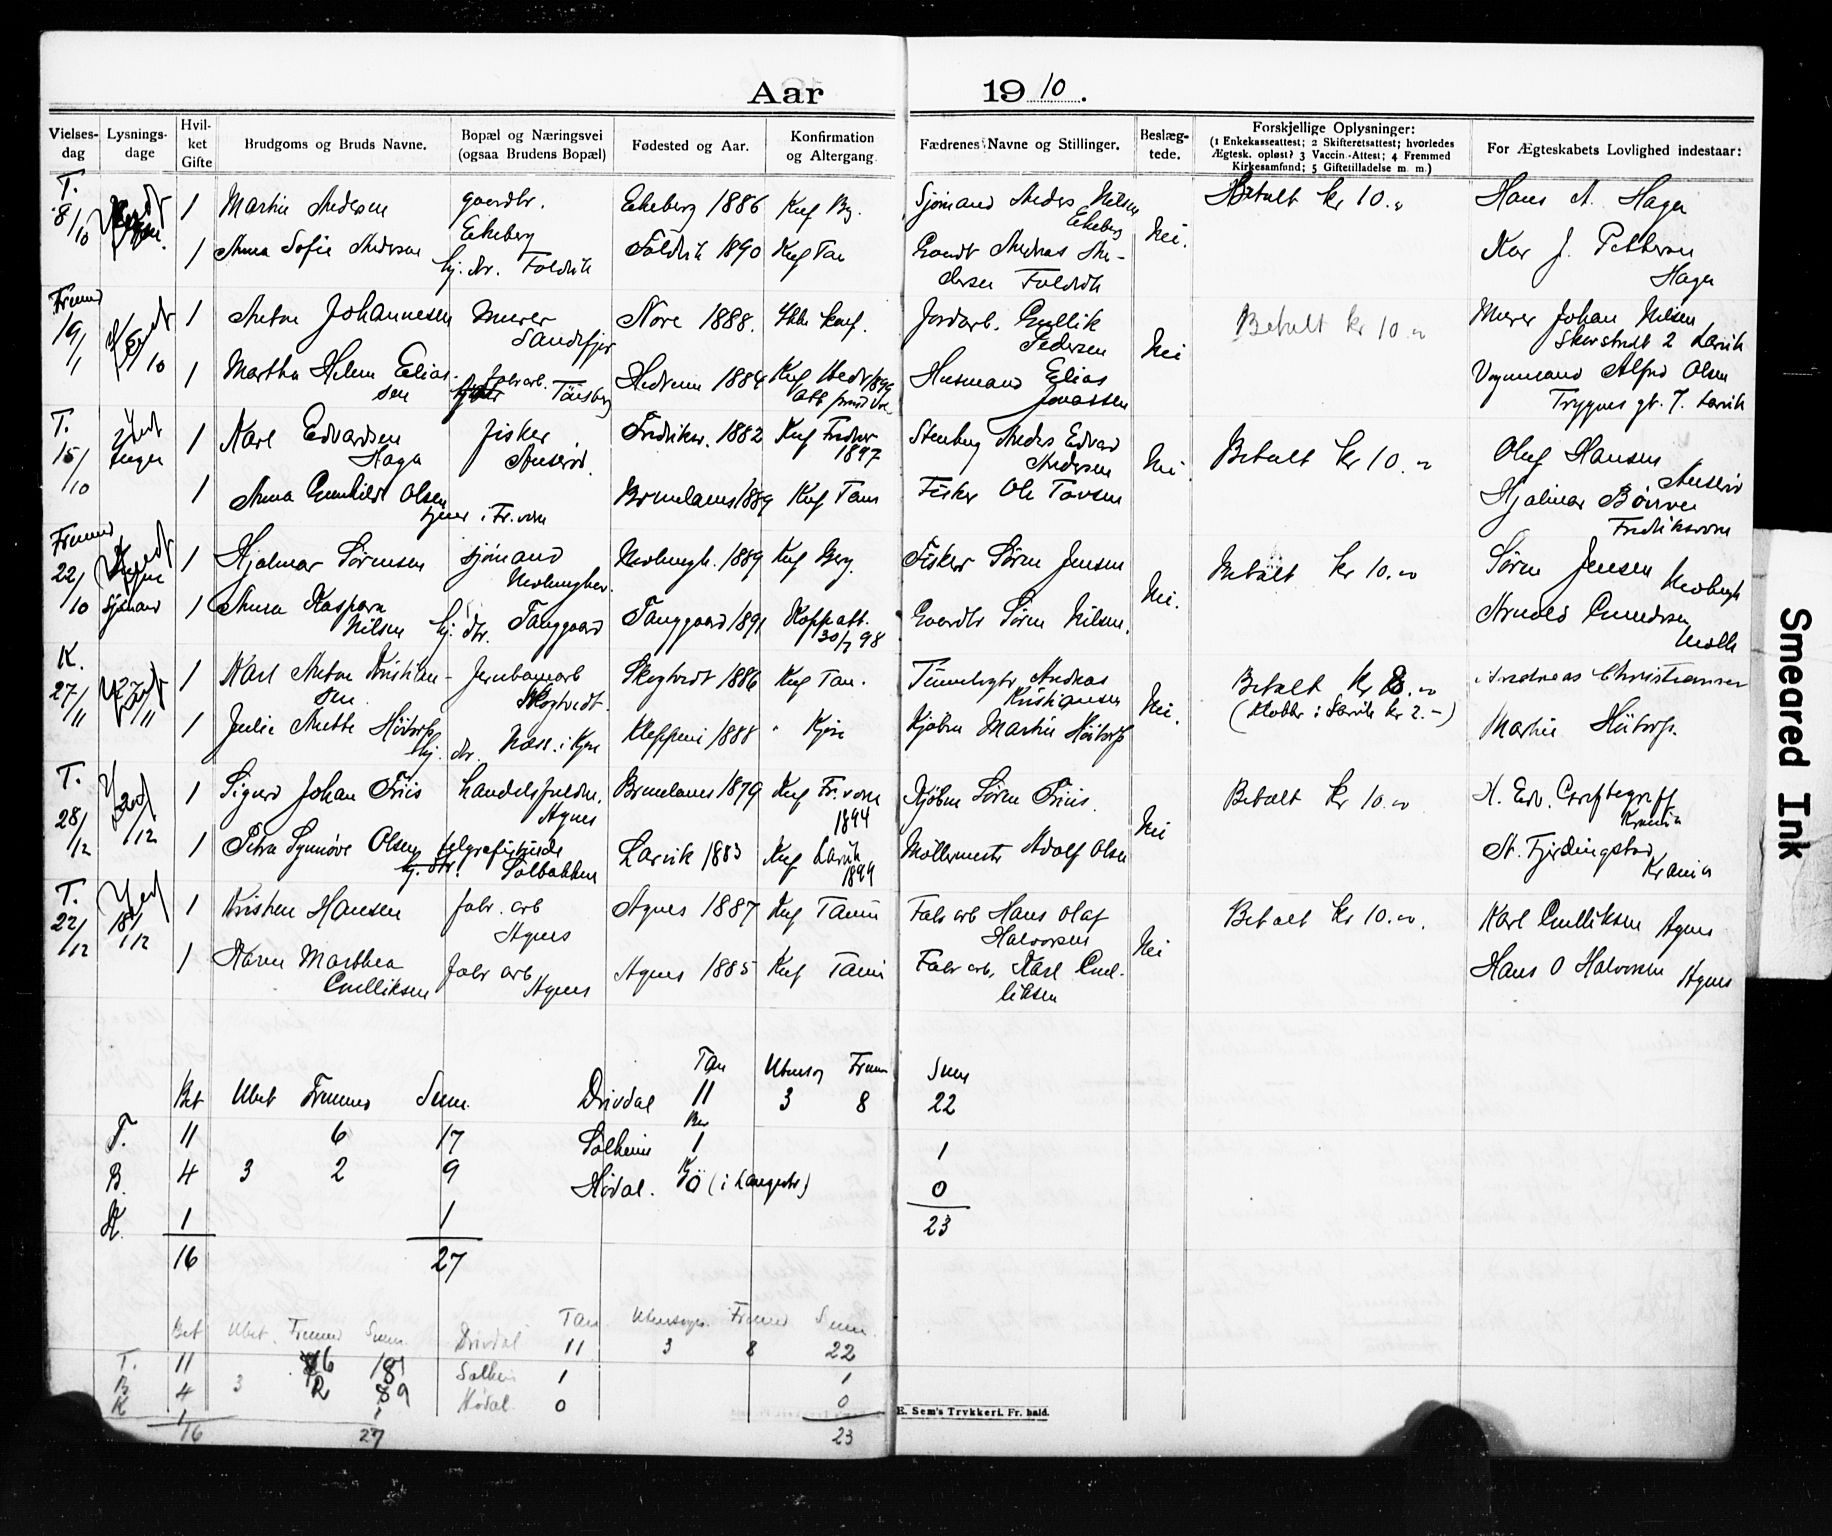 Aar 1910.
Vielses-dag Lysnings-dage Hvil-ket Gifte Brudgoms og Bruds Navne. Bopæl og Næringsvei (ogsaa Brudens Bopæl) Fødested og Aar. Konfirmation og Altergang. Fædrenes Navne og Stillinger. Beslæg-tede. Forskjellige Oplysninger: (1 Enkekasseattest; 2 Skifteretsattest; hvorledes Ægtesk. opløst? 3 Vaccin.-Attest; 4 Fremmed Kirkesamfund; 5 Giftetilladelse m. m.) For Ægteskabets Lovlighed indestaar:
T. 8/10 1 Martin Andersen gaardbr. Ekeberg Ekeberg 1886 Knf Bg. Sjømand Anders Nilsen Ekeberg Nei. Betalt kr 10.„ Hans A. Haga
1 Anna Sofie Andersen hj. dr. Foldvik Foldvik 1890 Knf Tan Gaardbr Andreas An-dersen Foldvik Kar J. Petterson Haga
Fremd 19/1 1 Anton Johannesen Murer Sandefjor Nore 1888. Ikke konf. Jordarb. Gullik Pedersen Nei Betalt kr 10.„ Murer Johan Nilsen 2 Larvik
1 Martha Helene Elias-sen fabrarb. Tönsberg Hedrum 1884 Knf Hedr 1899 Husmand Elias Jonassen Vognmand Alfred Olsen Trygves gt. 7. Larvik
T. 15/10 1 Karl Edvardsen Haga fisker Anserød. Frediksv. 1882 Knf Fredver 1897 Stenhug Anders Edvard Andersen Nei. Betalt kr 10.„ Oluf Hansen Anserød
1 Anna Gunhild Olsen tjener i Fr.vern Brunlanes 1889 Knf Tan Fisker Ole Tovsen Hjalmar Børven Frediksvern
Fremd 22/10 Sjömand 1 Hjalmar Sørensen Sjömand Nevlunghvn. Nevlungh. 1889 Knf Berg. Fisker Søren Jensen Nei. Betalt kr 10.„ Søren Jensen Nevlungh
1 Anna Kaspara Nilsen hj. dtr. Fanggaard Fanggaard 1891 Kopp att. 30/7 98 Gaardbr Søren Nilsen. Arnold Gundersen Melle
K. 27/11 1 Karl Anton Kristian-sen Jernbanearb Skogtvedt. Skogtvedt 1886 Knf Tan. Tømmerhugr Andreas Kristiansen Nei. Betalt kr 8.„ (Klokker i Larvik kr 2.-) Andreas Christiansen
1 Julie Anette Höitorp hj. dr. Næss i Kjose Kleppeni 1888 " Kjose Kjöbm Martin Höitorp Martin Höitorp.
T. 28/12 1 Sigurd Johan Friis handelsfuldm. Agnes Brunlanes 1879 Knf Fr.vern 1894 Kjøbm Søren Friis. Nei Betalt kr 10.„ H. Edv. Kr.ania
1 Petra Synnöve Olsen telegrafistinde Solbakken Larvik 1883 Knf Larvik 1899 Møllermester Adolf Olsen St. Fjerdingstad Kr.ania
T. 22/12 18/12 1 Kristen Hansen fabr. arb Agnes Agnes 1887 Knf Tanum Fabr arb Hans Olaf Halvorsen Nei Betalt kr 10.„. Karl Gulliksen Agnes
1 Karen Marthea Gulliksen fabr arb Agnes Agnes 1885 Knf Tanum Fabr arb. Karl Gul-liksen Hans O Halvorsen Agnes
Tan Utensog Fremm Sum
Bet Ubet Fremmed Sum. Drivdal 11 3 8 22
T. 11 6 17 Solheim Ber 1 1
B. 4 3 2 9 Hövdal. Kö (i Langestr) 0
K. 1 1 23
16 27
Tan Utensogn. Fremmd Sum.
Bet Ubet. Fremmd Sum. Drivdal 11 3 8 22
T. 11 6 18 Solheim 1 1
B 4 3 2 9 Hövdal. 0 0
K 1 1
16 27 23
E. Sem's Trykkeri. Fr. hald.
Smeared Ink